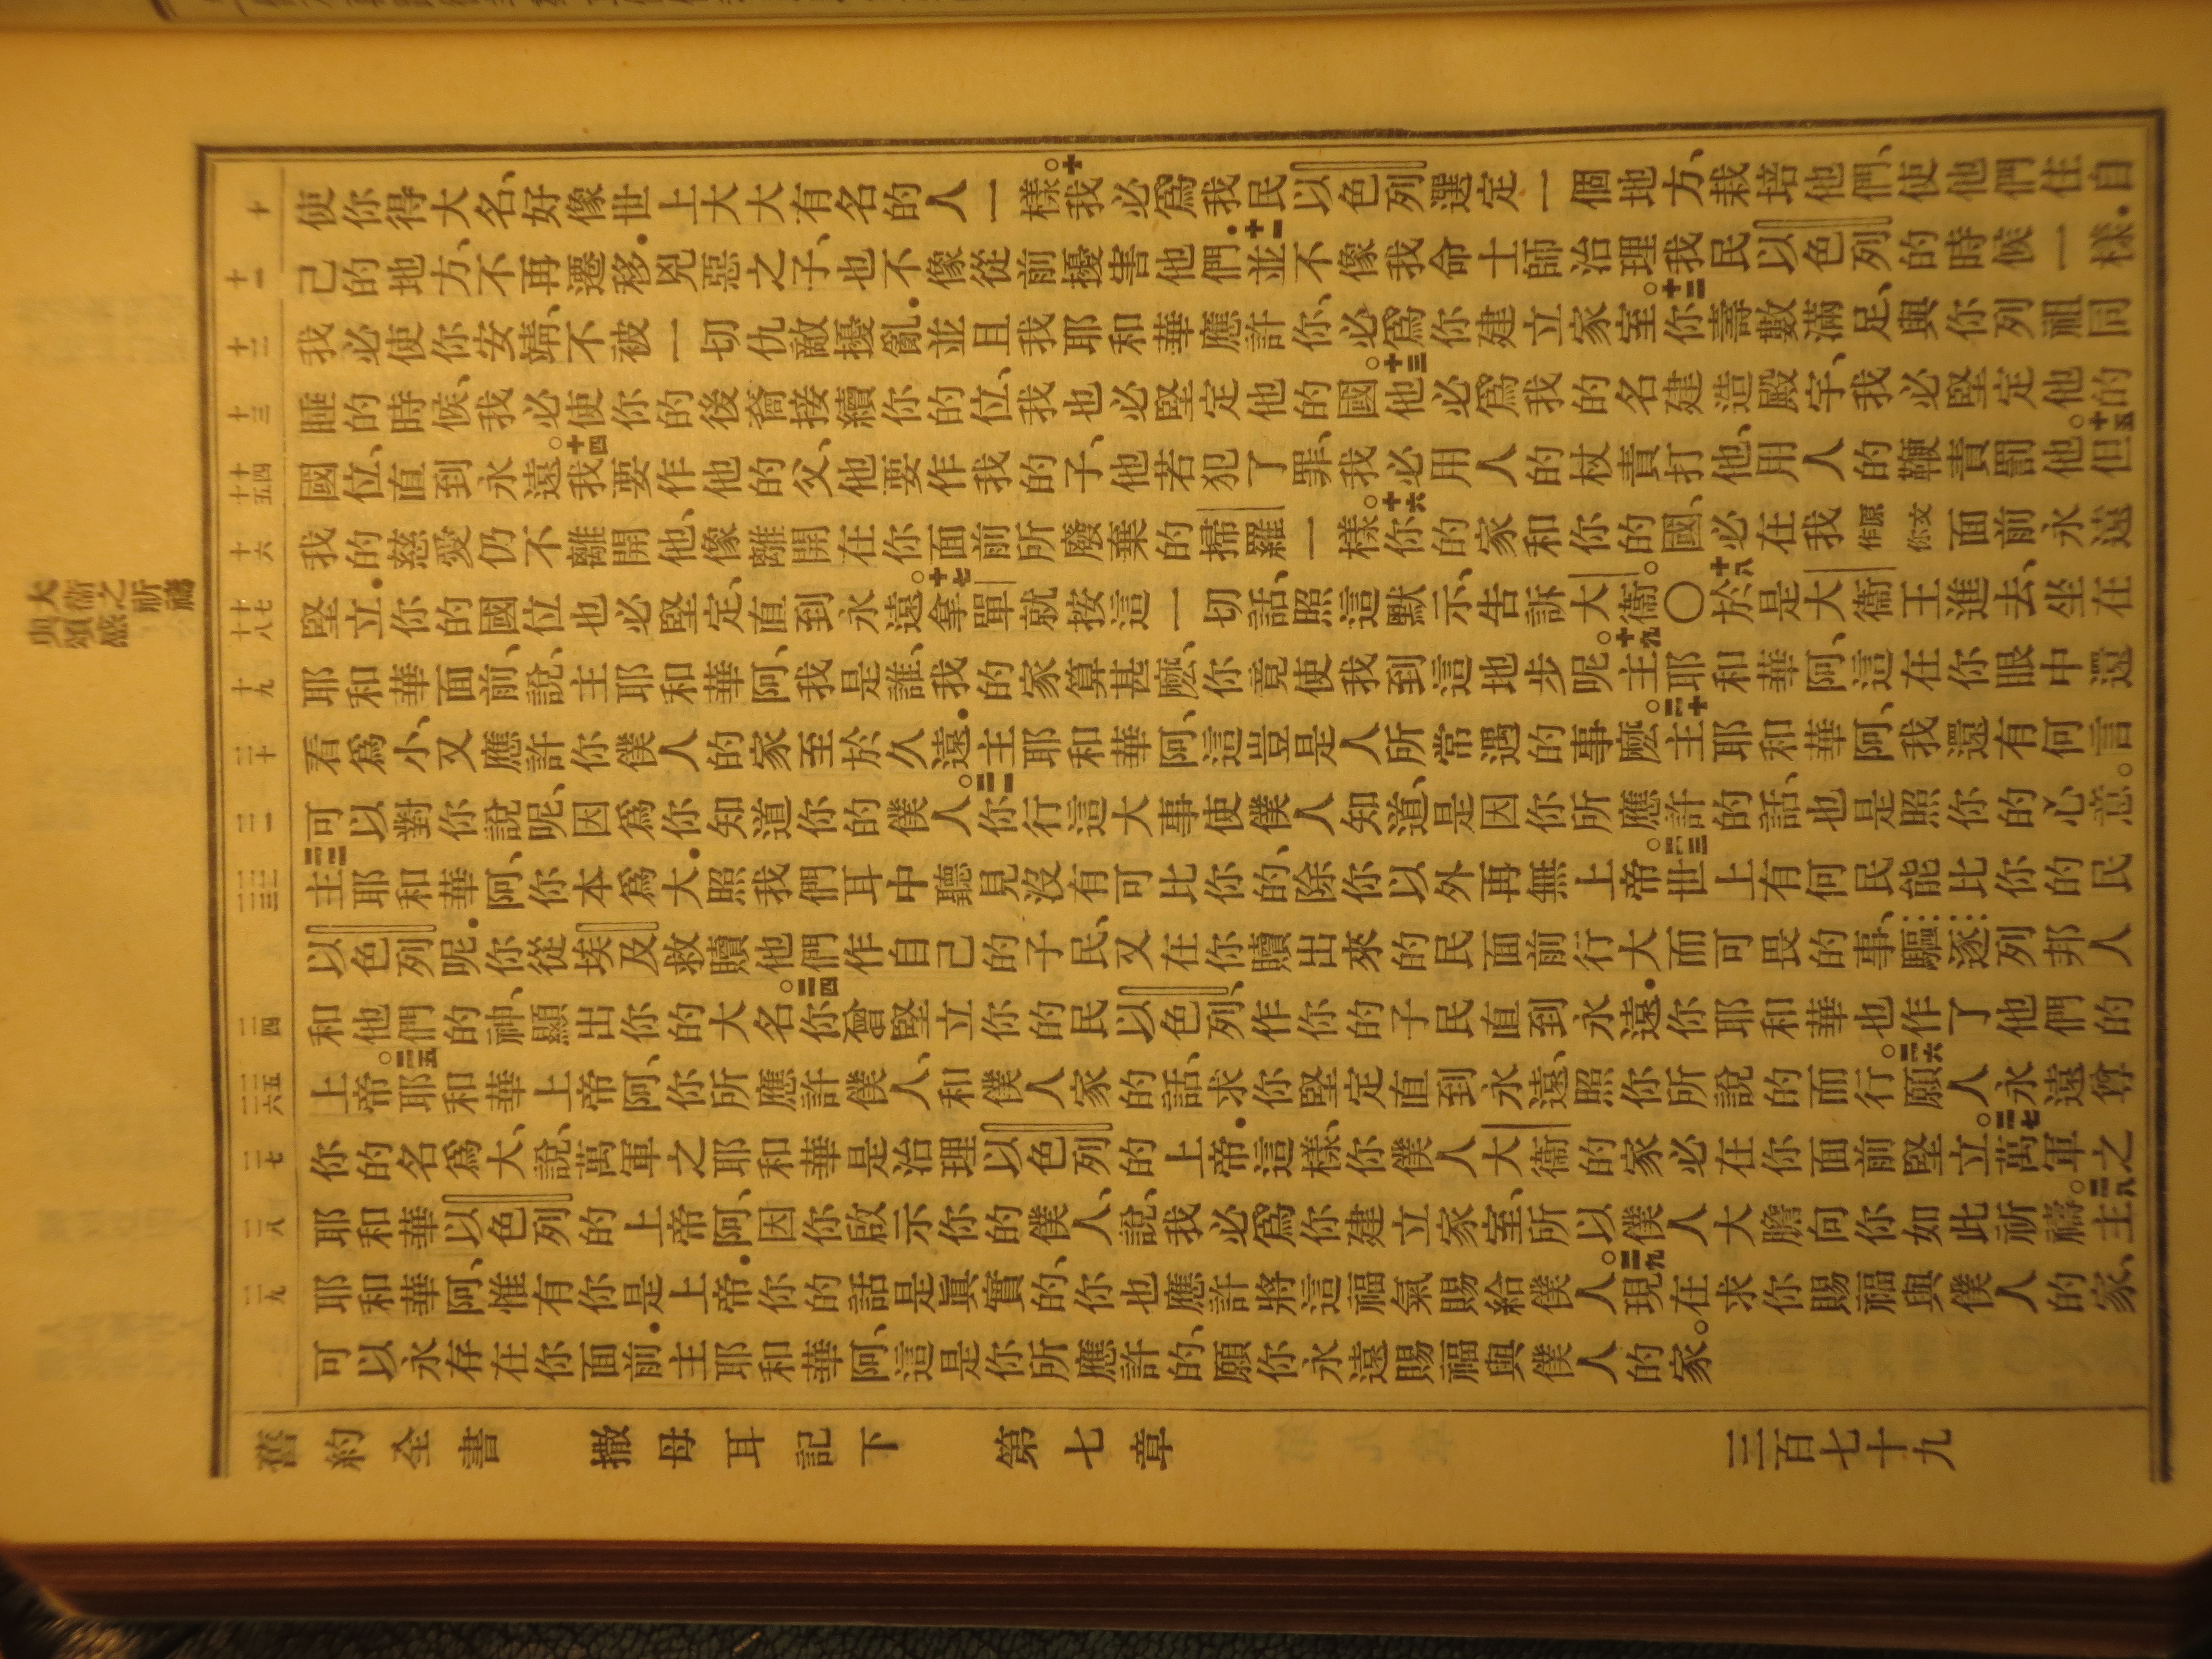 大衛之祈禱
頌感
十 十一 十二 十三 十四 十五 十六 十七 十八 十九 二十 二一 二二 二三 二四 二五 二六 二七 二八 二九
使你得大名、好像世上大大有名的人一樣。十我必爲我民以色列選定一個地方、栽培他們、使他們住自
己的地方、不再遷移.兇惡之子、也不像從前擾害他們.十一並不像我命士師治理我民以色列的時候一樣.
我必使你安靖、不被一切仇敵擾亂.並且我耶和華應許你、必爲你建立家室。十二你壽數滿足、與你列祖同
睡的時候、我必使你的後裔接續你的位、我也必堅定他的國。十三他必爲我的名建造殿宇、我必堅定他的
國位、直到永遠。十四我要作他的父、他要作我的子、他若犯了罪、我必用人的杖責打他、用人的鞭責罰他。十五但
我的慈愛仍不離開他、像離開在你面前所廢棄的掃羅一樣。十六你的家和你的國、必在我原文作你面前永遠
堅立.你的國位也必堅定、直到永遠。十七拿單就按這一切話、照這默示、告訴大衛。○十八於是大衛王進去、坐在
耶和華面前、說、主耶和華阿、我是誰、我的家算甚麼、你竟使我到這地步呢。十九主耶和華阿、這在你眼中還
看爲小、又應許你僕人的家至於久遠.主耶和華阿、這豈是人所常遇的事麼。二十主耶和華阿、我還有何言
可以對你說呢、因爲你知道你的僕人。二一你行這大事使僕人知道、是因你所應許的話、也是照你的心意。
二二主耶和華阿、你本爲大.照我們耳中聽見沒有可比你的、除你以外再無上帝。二三世上有何民能比你的民
以色列呢.你從埃及救贖他們作自己的子民、又在你贖出來的民面前行大而可畏的事、驅逐列邦人
和他們的神、顯出你的大名。二四你曾堅立你的民以色列、作你的子民直到永遠.你耶和華也作了他們的
上帝。二五耶和華上帝阿、你所應許僕人、和僕人家的話、求你堅定直到永遠、照你所說的而行。二六願人永遠尊
你的名爲大、說、萬軍之耶和華是治理以色列的上帝.這樣、你僕人大衛的家必在你面前堅立。二七萬軍之
耶和華以色列的上帝阿、因你啟示你的僕人、說、我必爲你建立家室、所以僕人大膽向你如此祈禱。二八主
耶和華阿、惟有你是上帝.你的話是眞實的、你也應許將這福氣賜給僕人。二九現在求你賜福與僕人的家、
可以永存在你面前.主耶和華阿、這是你所應許的、願你永遠賜福與僕人的家。
舊約全書 撒母耳記下 第七章 三百七十九